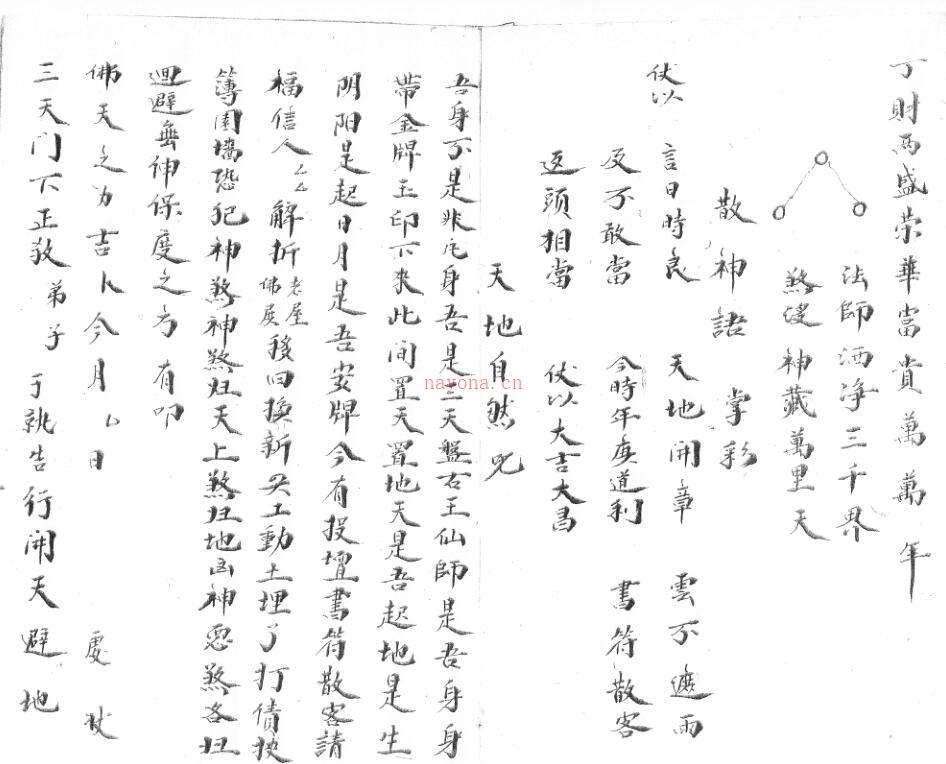 丁財兩盛荣華當貴萬萬年
法師洒净三千界
煞侵神藏萬里天
散神語 掌彩
伏以 言日時良 天地開章 雲不遮雨
及不敢當 今時年庚道利 書符散客
返頭相當 伏以大吉大昌
天地自然咒
吾身不是非凡身吾是三天盤古王仙師是吾身身
帶金牌玉印下來此间置天置地天是吾起地是生
阴阳是起日月是吾安牌今有投壇書符散客請
福信人厶厶解折老屋佛屋移旧換新 工動土埋了打債
簿圍墻恐犯神煞神煞归天上煞归地凶神惡煞各归
迴避無神保度之方有叩
佛天之力吉卜今月厶日 處
三天门下正教弟子 于執告行開天避地
nayona.cn